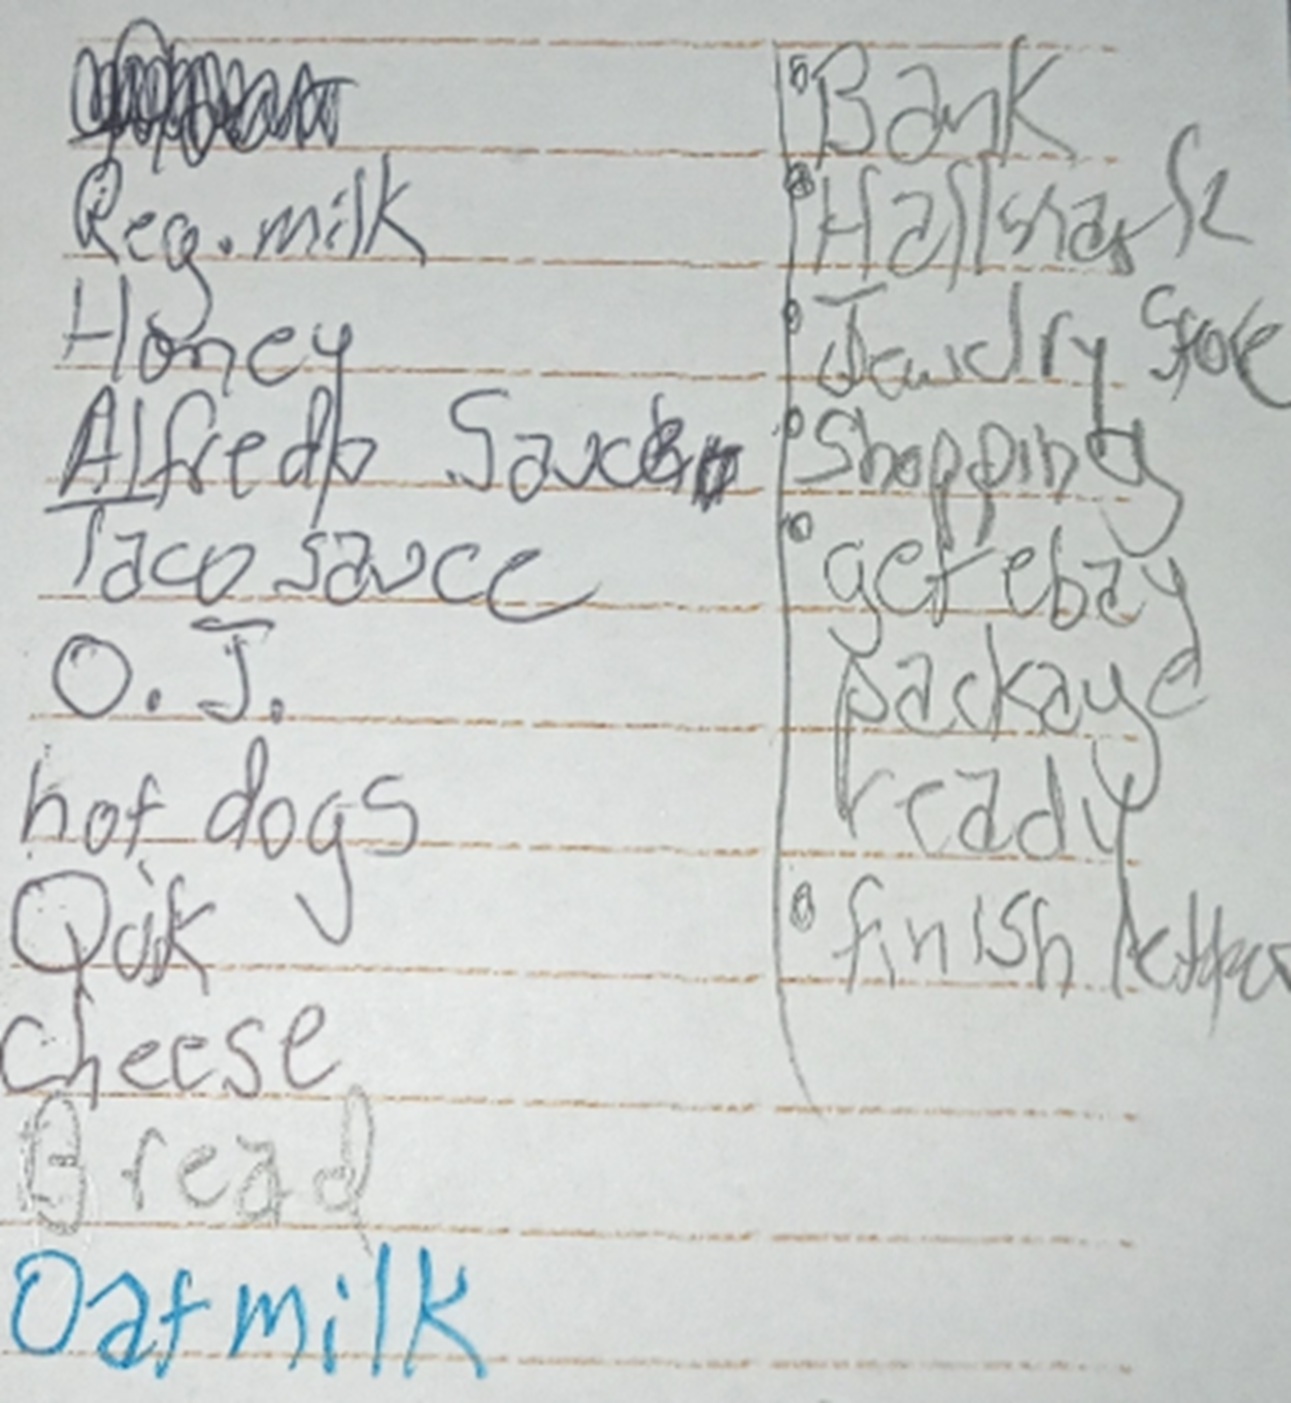 Reg. milk
Honey
Alfredo Sauce
Taco sauce
O.J.
hot dogs
Quik
cheese
Bread
Oatmilk
Bank
Hallmark
Jewelry Store
Shopping
get ebay
package
ready
finish letter